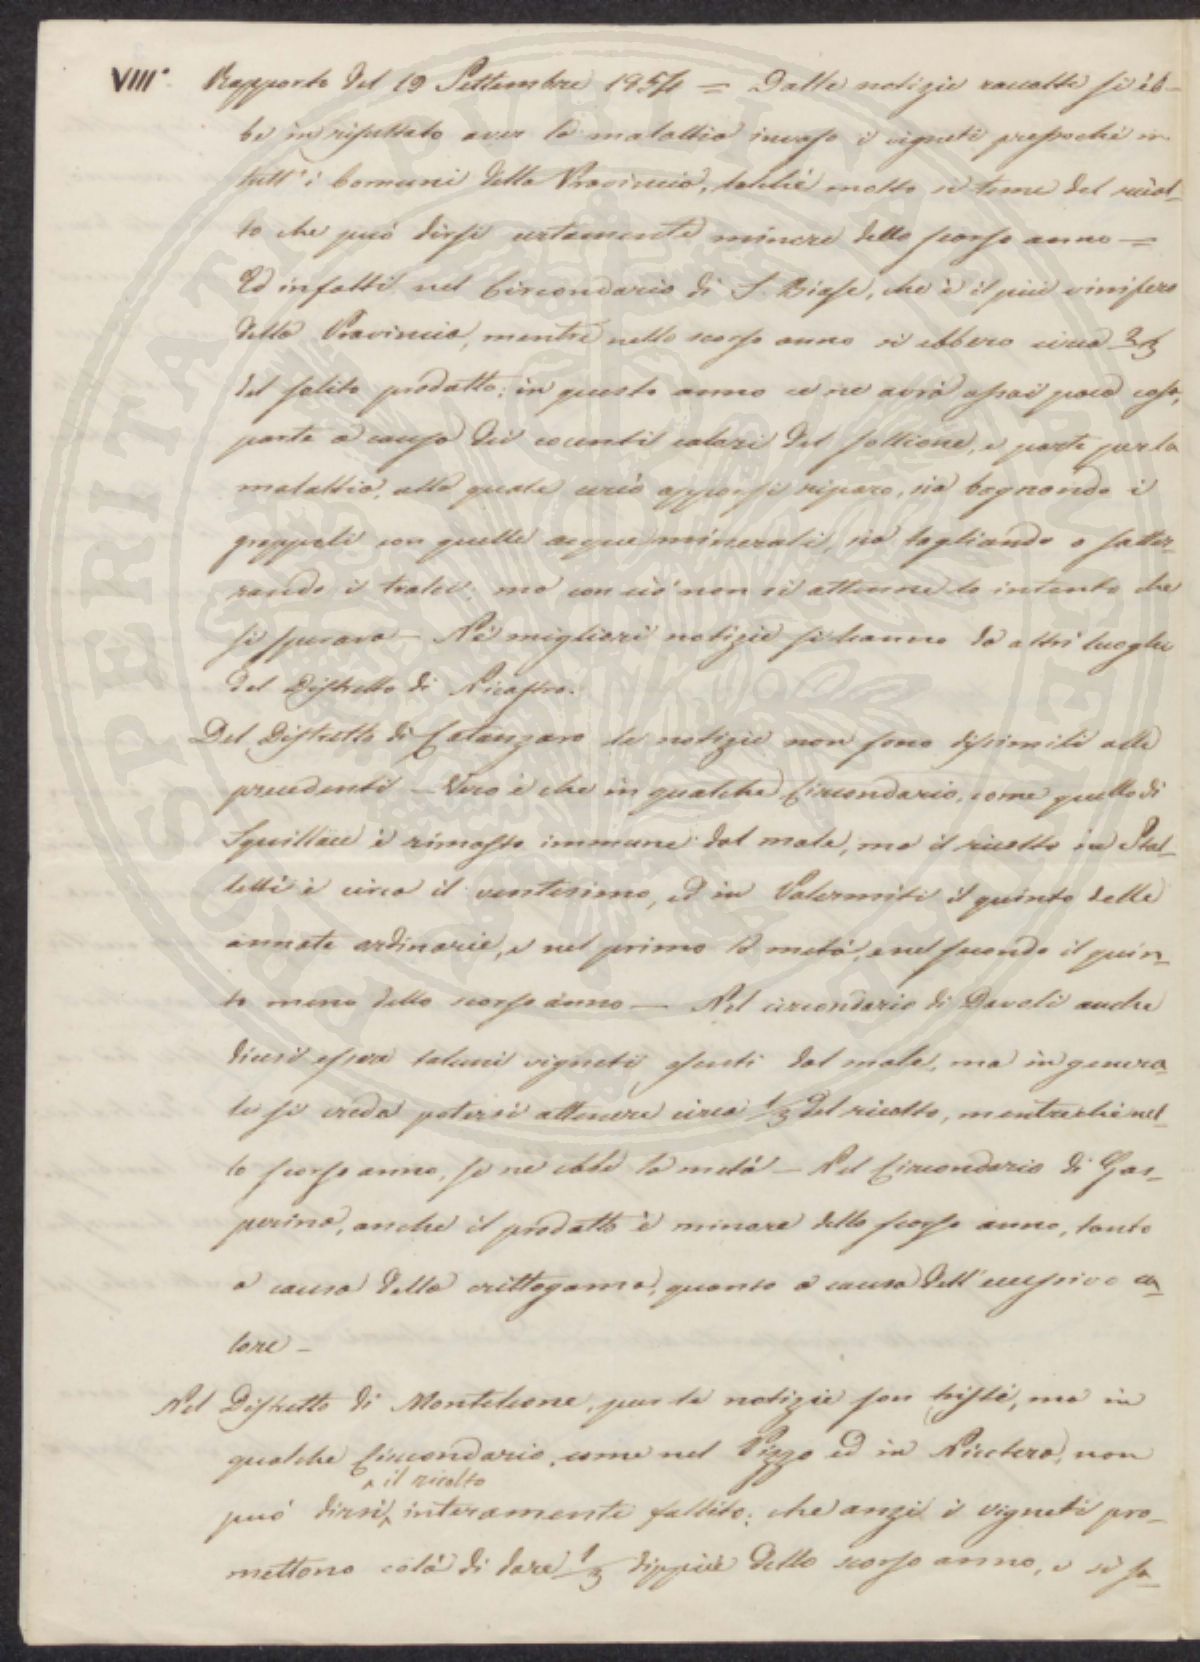 VIII.° Rapporto del 19 Settembre 1854 = Dalle notizie raccolte si eb-
be in risultato aver la malattia invaso i vigneti pressoché in
tutt'i Comuni della Provincia, talché molto si teme del ricol-
to che può dirsi certamente minore dello scorso anno =
Ed infatti nel Circondario di S. Biase, che è il più vinifero
della Provincia, mentre nello scorso anno si ebbero circa 2/3
del solito prodotto; in questo anno ce ne avrà assai poca cosa,
parte a causa dei cocenti calori del sollione, e parte per la
malattia, alla quale cercò apporsi riparo, sia bagnando i
grappoli con quelle acque minerali, sia tagliando o sotter-
rando i tralci; ma con ciò non si attenne lo intento che
si sperava — Né migliori notizie si hanno da altri luoghi
del Distretto di Nicastro.
Del Distretto di Catanzaro le notizie non sono dissimili alle
precedenti — Vero è che in qualche Circondario, come quello di
Squillace è rimasto immune dal male, ma il ricolto in Stal-
letti è circa il ventesimo, ed in Palermiti il quinto delle
annate ordinarie, e nel primo la metà, e nel secondo il quin-
to meno dello scorso anno — Nel circondario di Davoli anche
dicesi essere taluni vigneti esenti dal male, ma in genera-
le si crede potersi attenere circa 1/3 del ricolto, mentreché nel-
lo scorso anno, se ne ebbe la metà — Nel Circondario di Gas-
perina, anche il prodotto è minore dello scorso anno, tanto
a causa della crittogama, quanto a causa dell'eccessivo ca-
lore —
Nel Distretto di Monteleone, pur le notizie son triste, ma in
qualche Circondario, come nel Pizzo ed in Nicotera, non
il ricolto
può dirsi interamente fallito; che anzi i vigneti pro-
mettono colà di dare 1/3 dippiù dello scorso anno, e si sa-